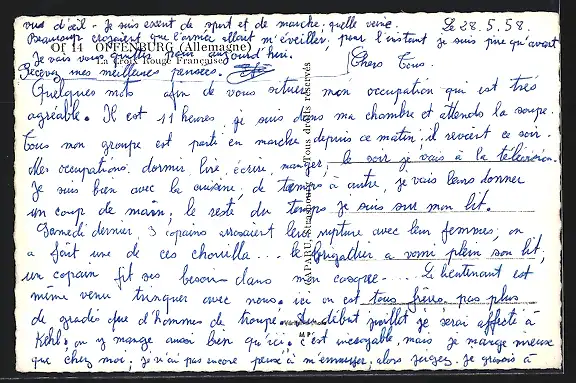 vue d'œil - Je suis exempt de sport et de marche, quelle veine. Le 28.5.58.
Beaucoup croyaient que l'armée allait m'éveiller, pour l'instant je suis pire qu'avant
Of 14 OFFENBURG (Allemagne)
Je vais vous quitter pour aujourd'hui.
La Croix Rouge Française
Recevez mes meilleures pensées.
Chers Tous.
Quelques mots afin de vous situer mon occupation qui est très
agréable. Il est 11 heures, je suis dans ma chambre et attends la soupe.
Tous mon groupe est parti en marche depuis ce matin, il revient ce soir.
Mes occupations: dormir, lire, écrire, manger, le soir je vais à la télévision.
Je suis bien avec la cuisine, de temps à autre, je vais leurs donner
un coup de main, le reste du temps je suis sur mon lit.
Samedi dernier, 3 copains arrosaient leur rupture avec leur femmes, on
a fait une de ces chouilla... le brigadier a vomi plein son lit,
un copain fit ses besoins dans mon casque---- Le lieutenant est
même venu trinquer avec nous. ici on est tous frères, pas plus
de gradés que d'hommes de troupe. Au début juillet je serai affecté à
Kehl, on y mange aussi bien qu'ici. c'est incroyable, mais je mange mieux
que chez moi, je n'ai pas encore pensé à m'ennuyer, alors jugez. Je grossis à
Tous droits réservés